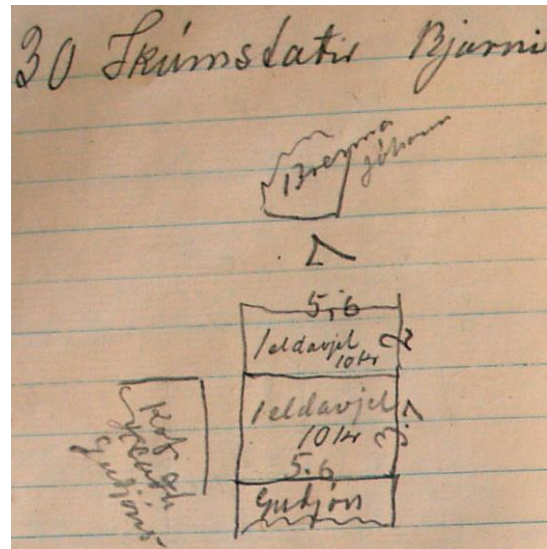 30 Skúmstaðir Bjarni
Brenna
Jóhann
5,6
1 eldavjel 2
10 kr
1 eldavjel
10 kr 3.7
5.6
Guðjón
Kof
Guðjóns